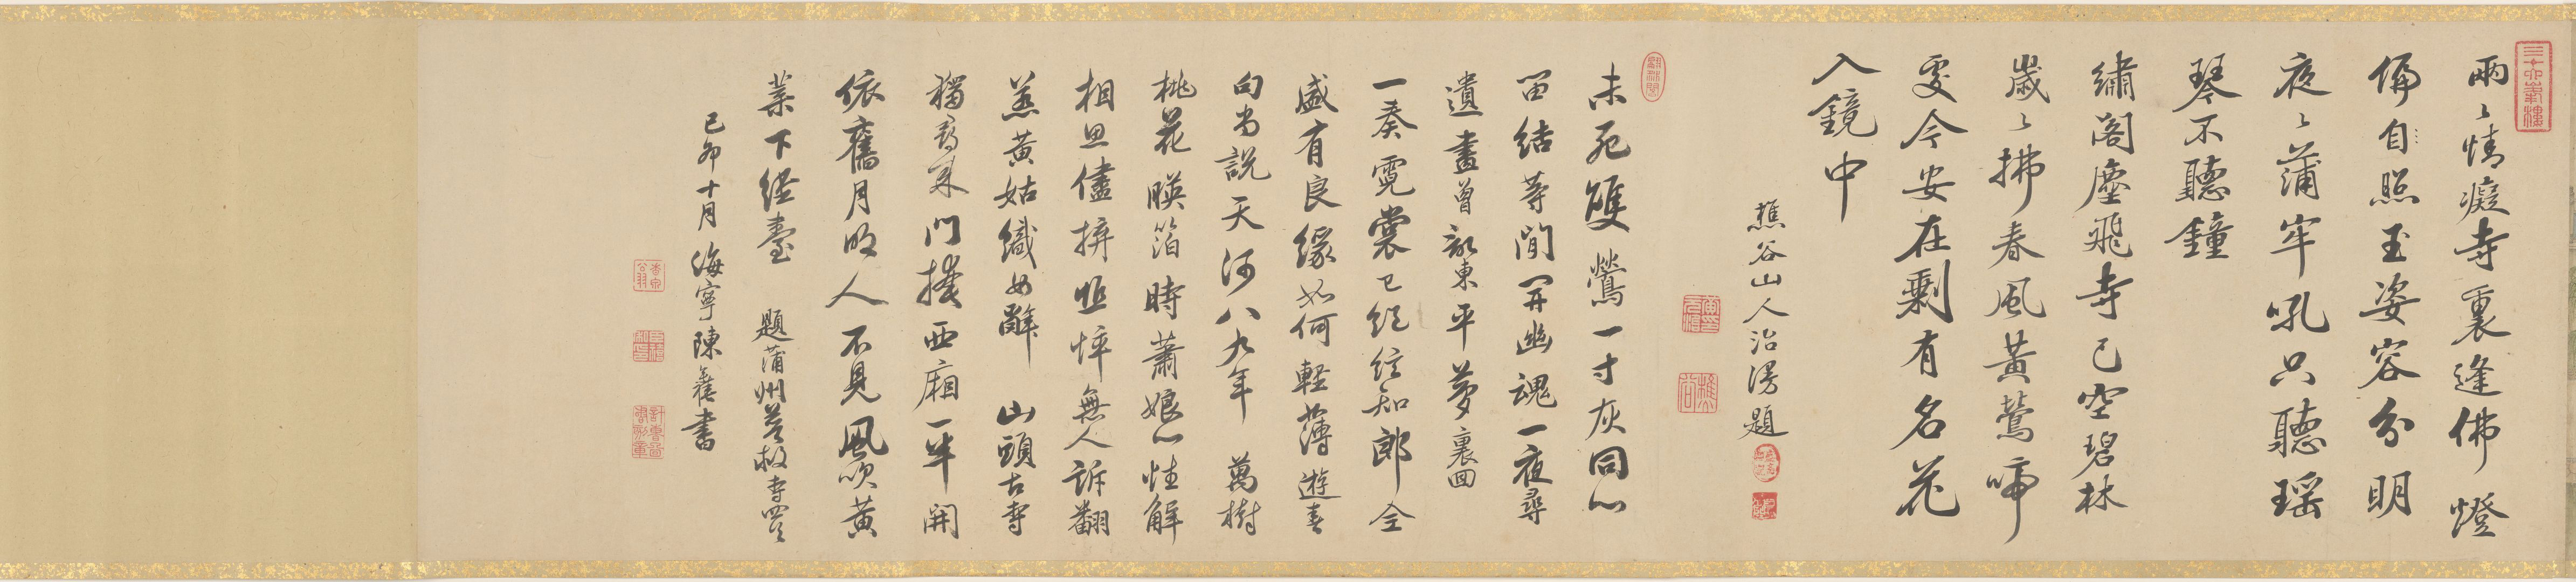 兩〻情癡寺裏逢佛燈
偏自照玉姿容分明
夜〻蒲牢吼只聽瑶
琴不聽鐘
繡閣塵飛寺已空碧林
歲〻拂春風黃鶯啼
處今安在剩有名花
入鏡中
樵谷山人治漫題
未死雙鶯一寸灰同心
留結等閒开幽魂一夜尋
遺畫曾記東平夢裏回
一奏霓裳已經知郎全
盛有良緣如何輕薄遊春
句尚說天河八九年 萬樹
桃花暎箔時蕭娘心性解
相思儘拚匹悴無人訴翻
羨黃姑織女辭 山頭古寺
獨尋來門掩西廂一半開
依舊月明人不見風吹黃
葉下經臺 題蒲州普救寺四首
己卯十月海寧陳奕禧書